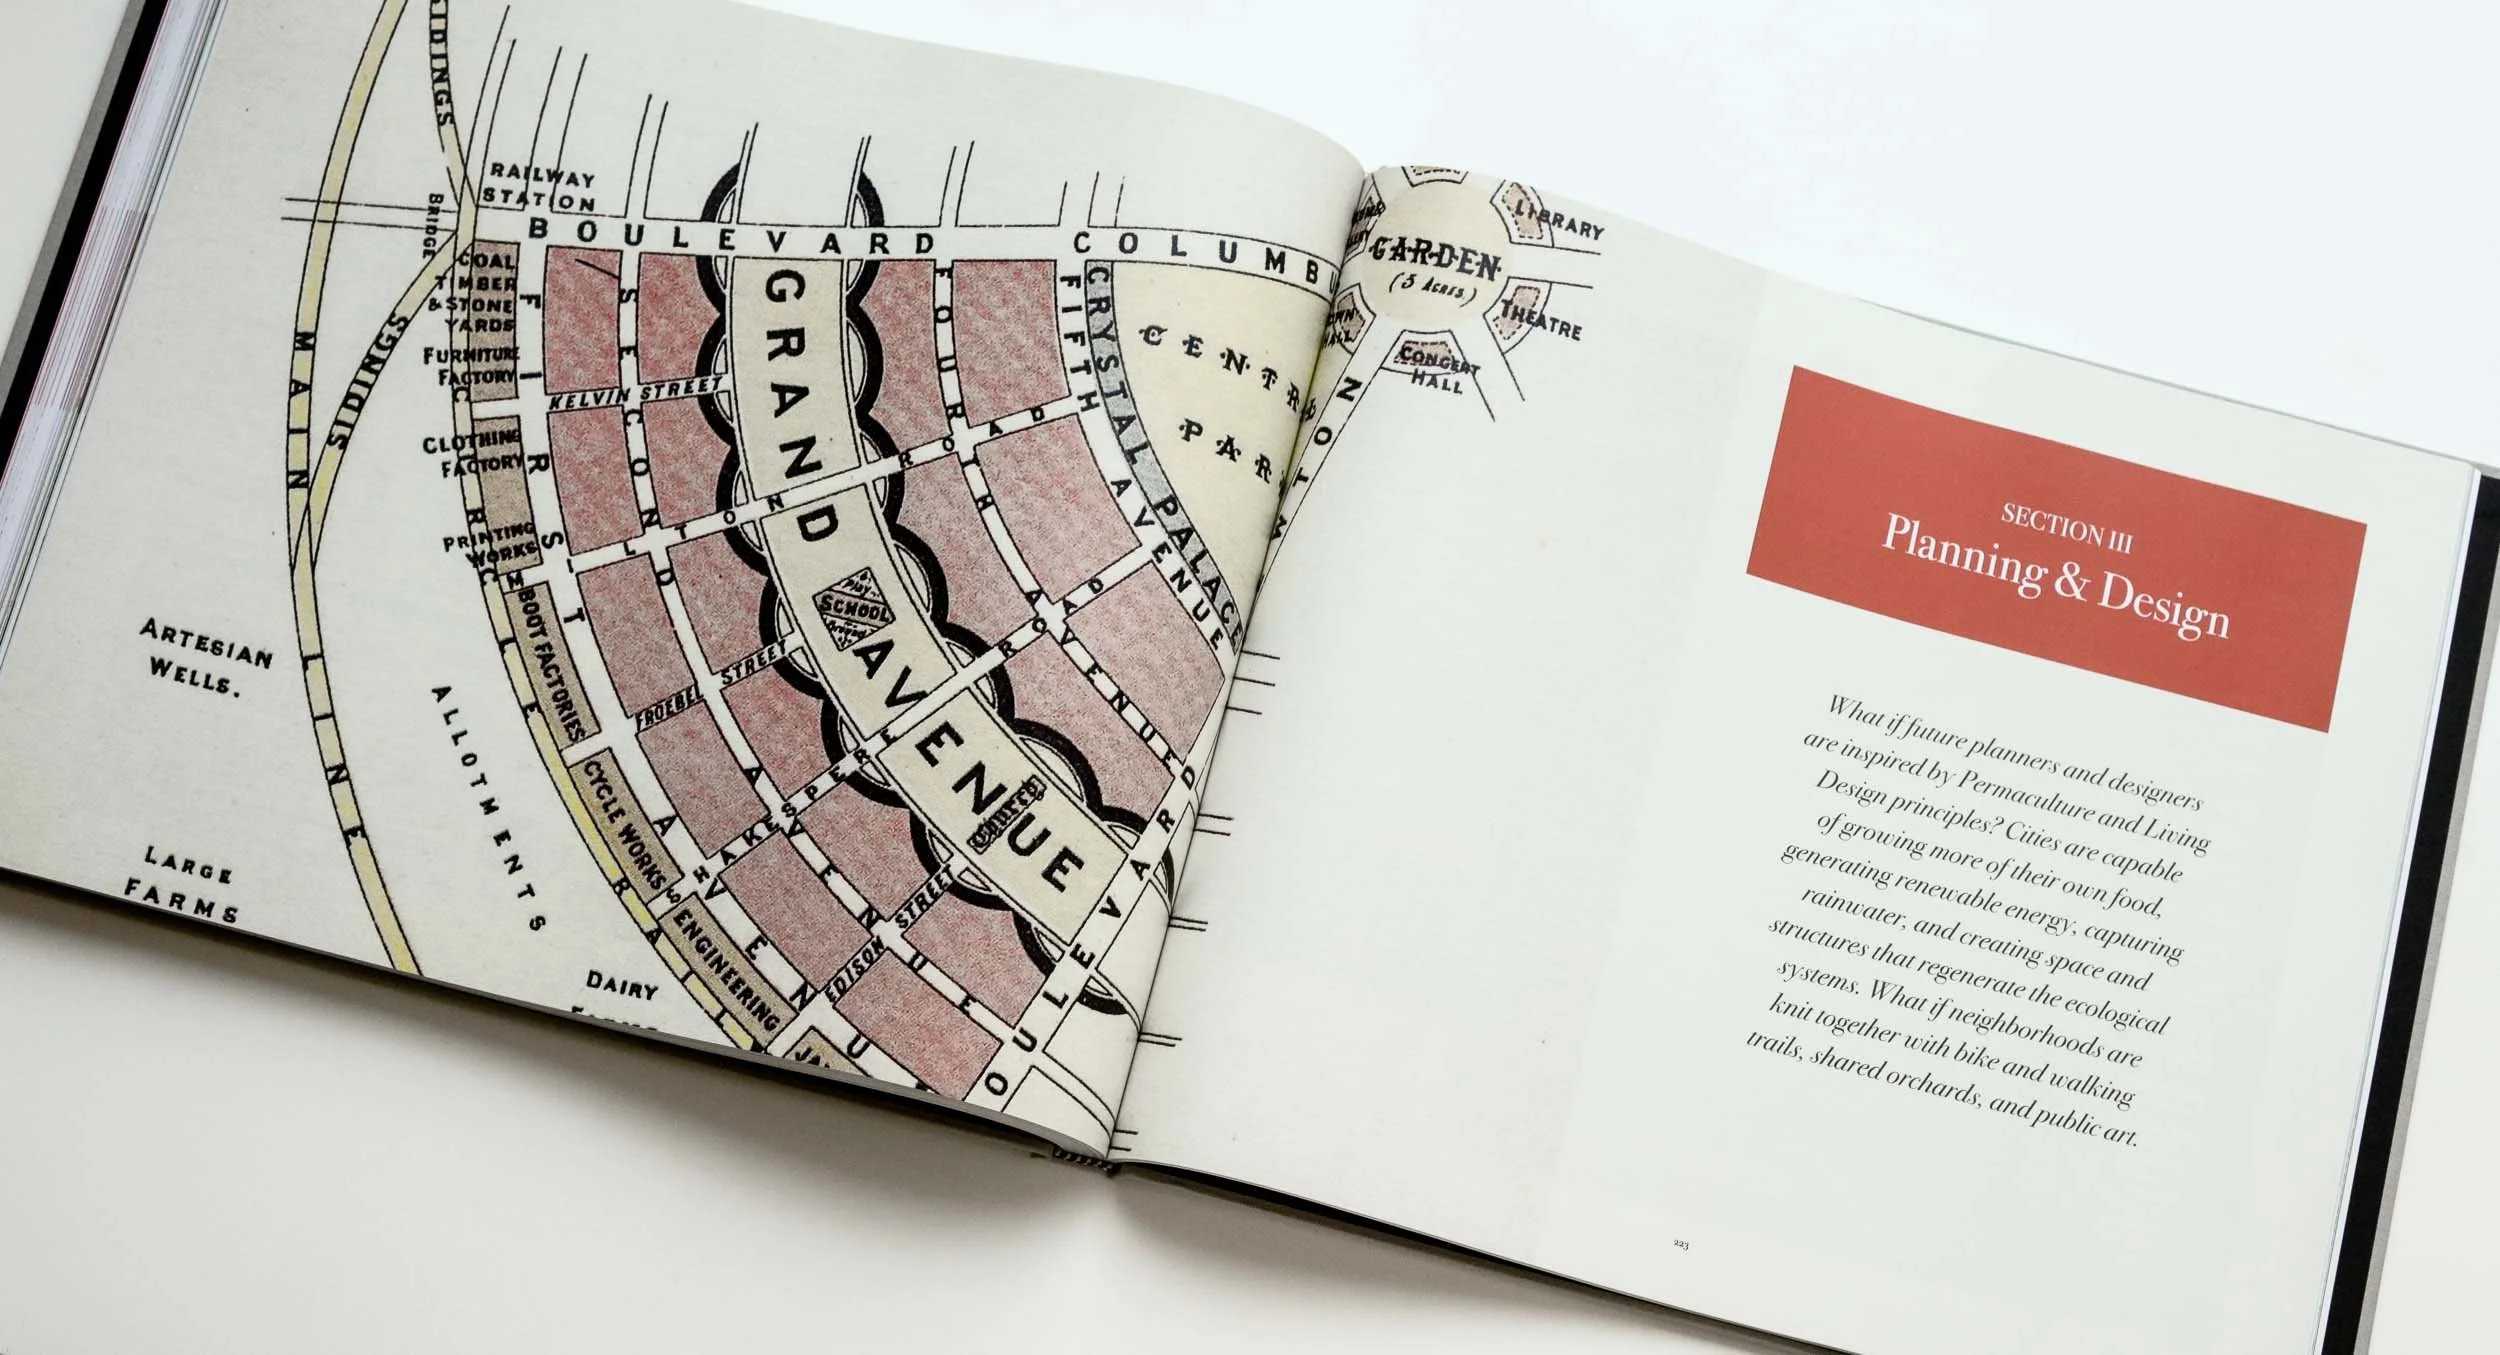 SIDINGS
RAILWAY
STATION
BRIDGE
BOULEVARD COLUMBU
COAL
TIMBER
& STONE
YARDS
FURNITURE
FACTORY
CLOTHING
FACTORY
PRINTING
WORKS
BOOT FACTORIES
CYCLE WORKS
ENGINEERING
JA
CIRCLE RAIL
MAIN LINE
SIDINGS
FIRST AVENUE
SECOND AVENUE
GRAND AVENUE
FOURTH AVENUE
FIFTH AVENUE
CRYSTAL PALACE
CENTR
PAR
KELVIN STREET
MILTON ROAD
FROEBEL STREET
SHAKESPERE ROAD
EDISON STREET
BOULEVARD
NEWTON
Play
SCHOOL
Ground
Church
ARTESIAN
WELLS.
ALLOTMENTS
LARGE
FARMS
DAIRY
LIBRARY
GARDEN
(5 ACRES)
THEATRE
CONCERT
HALL
SECTION III
Planning & Design
What if future planners and designers
are inspired by Permaculture and Living
Design principles? Cities are capable
of growing more of their own food,
generating renewable energy, capturing
rainwater, and creating space and
structures that regenerate the ecological
systems. What if neighborhoods are
knit together with bike and walking
trails, shared orchards, and public art.
223